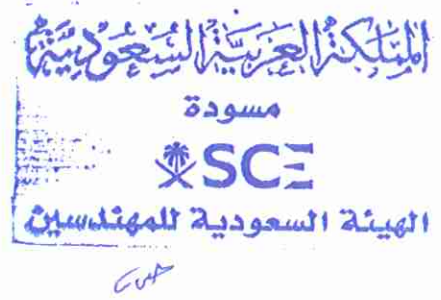 المملكة العربية السعودية
مسودة
SCE
الهيئة السعودية للمهندسين